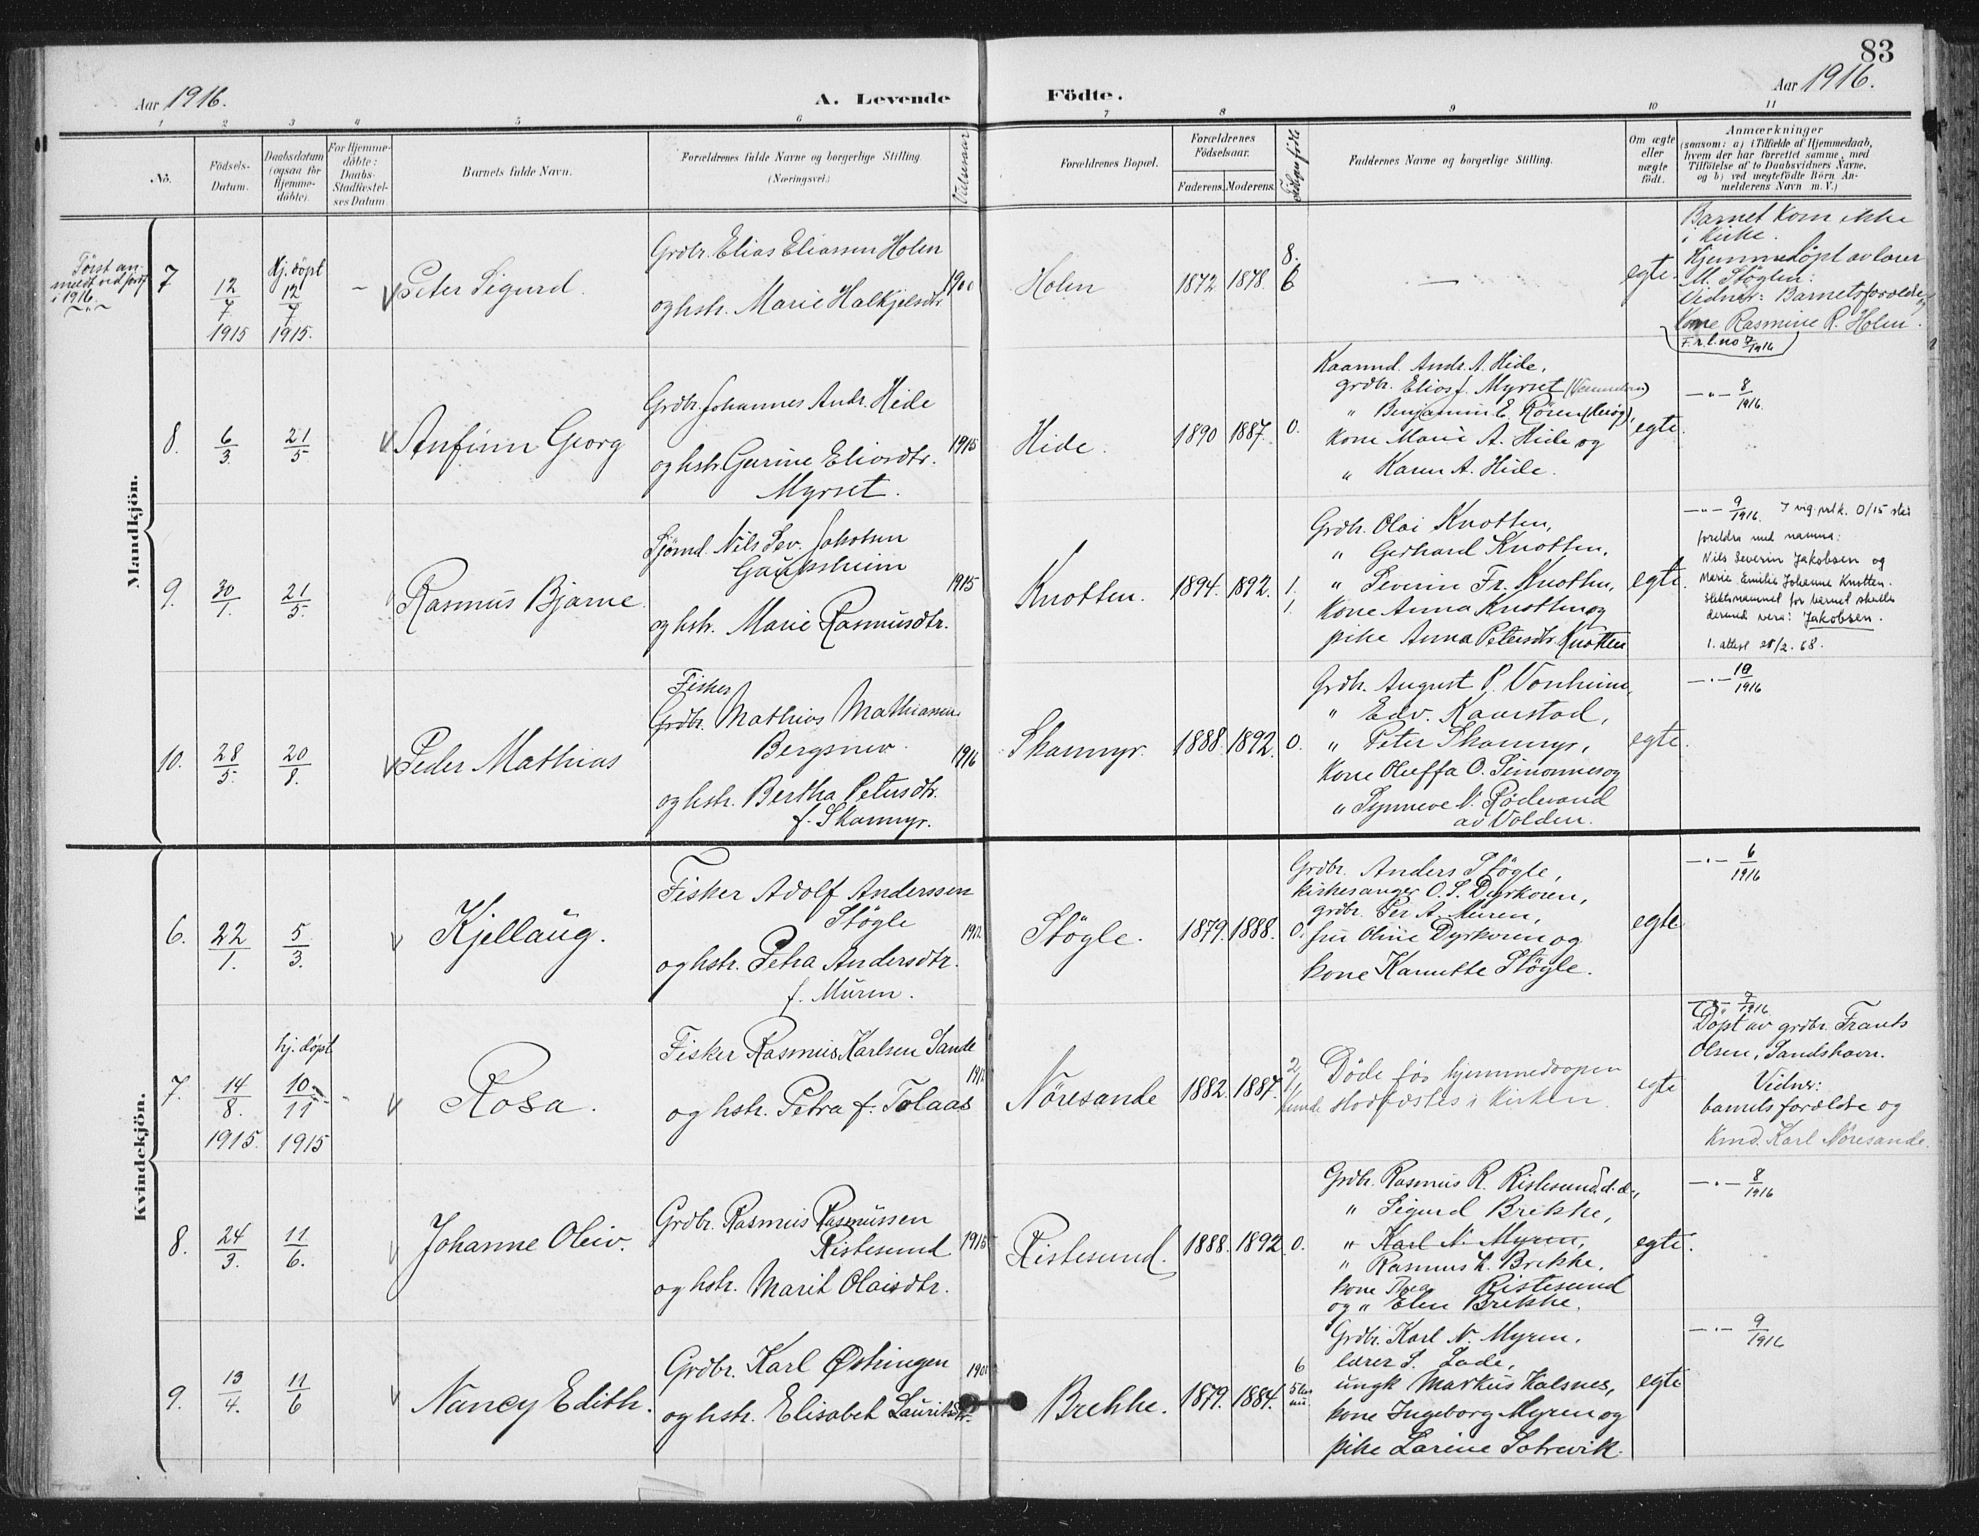 83
Aar 1916.
A. Levende
Födte.
Aar 1916.
1 2 3 4 5 6 7 8 9 10 11
No.
Födsels-
Datum.
Daabsdatum
(ogsaa for
Hjemme-
döbte).
For Hjemme-
döbte:
Daabs-
Stadfæstel-
ses Datum.
Barnets fulde Navn.
Forældrenes fulde Navne og borgerlige Stilling.
(Næringsvei.)
Vielsesaar
Forældrenes Bopæl.
Forældrenes
Födselsaar.
Faderens. Moderens.
Faddernes Navne og borgerlige Stilling.
Om ægte
eller
uægte
födt.
Anmærkninger
(saasom: a) i Tilfælde af Hjemmedaab,
hvem der har forrettet samme, med
Tilföielse af to Daabsvidners Navne,
og b) ved uægtefödte Börn An-
melderens Navn m. V.)
Mandkjön.
Först an-
meldt ved
i 1916.
7
12/7
1915
Hj. döpt
12/7
1915.
Peter Sigurd
Grdbr. Elias Eliassen Holen
og hstr. Marie Halkjelsdtr.
1900
Holen
1872 1878
8.
6
—
egte.
Barnet kom ikke
i kirke.
Hjemmedöpt av lærer
M. Stöglen:
Vidner: Barnets forældre og
Kone Rasmine R. Holen.
F. r. l. no 7/1916
8. 6/3 21/5
Anfinn Georg
Grdbr. Johannes Andr. Hide
og hstr. Gurine Eliasdtr.
Myrset.
1915
Hide.
1890 1887. 0.
Kaarmd. Andr. A. Hide,
grdbr. Elias J. Myrset
" Benjamin E. Rören
kone Marie A. Hide og
" Karen A. Hide.
egte.
—"— 8/1916.
9. 30/1. 21/5
Rasmus Bjarne
Sjömd. Nils Sev. Jakobsen
Gaupsheim
og hstr. Marie Rasmusdtr.
1915
Knotten.
1894. 1892. 1.
1.
Grdbr. Olai Knotten,
" Gerhard Knotten,
" Severin Fr. Knotten,
kone Anna Knotten og
pike Anna Petersdtr. Knotten
egte.
—"— 9/1916. I vig. prtk. 0/15 står
foreldra med namna:
Nils Severin Jakobsen og
Marie Emilie Johanne Knotten.
Slektsnamnet for barnet skulle
dermed vera: Jakobsen.
1. attest 28/2. 68.
10. 28/5. 20/8.
Peder Mathias
Fisker
Grdbr. Mathias Mathiassen
Bergsnev
og hstr. Bertha Petersdtr.
f. Skamnyr.
1916
Skamnyr.
1888 1892. 0.
Grdbr. August P. Vonheim,
" Edv. Kaarstad,
" Peter Skamnyr,
kone Oluffa O. Simonnes og
" Synneve N. Röderand
av Volden.
egte.
—"— 10/1916
Kvindekjön.
6. 22/1. 5/3.
Kjellaug.
Fisker Adolf Anderssen
Stögle
og hstr. Petra Andersdtr.
f. Muren.
1912
Stögle.
1879. 1888. 0.
Grdbr. Anders Stögle,
kirkesanger O. S. Dyrkoren,
grdbr. Per A. Muren,
fru Oline Dyrkoren og
kone Kanutte Stögle.
egte
—"— 6/1916
7. 14/8.
1915.
hj. döpt
10/11
1915
Rosa.
Fisker Rasmus Karlsen Sande
og hstr. Petra f. Tolaas
1912
Nöresande
1882. 1887.
2
Döde før hjemmedaapen
stadfæstes i kirken.
egte
—"— 7/1916
Döpt av grdbr. Frants
Olsen, Sandshavn.
Vidner:
barnets forældre og
kmd. Karl Nöresande.
8. 24/3. 11/6.
Johanne Oleiv.
Grdbr. Rasmus Rasmussen
Ristesund
og hstr. Marit Olaisdtr.
1915
Ristesund.
1888. 1892 0.
Grdbr. Rasmus R. Ristesund d. æ.,
" Sigurd Brekke,
" Karl N. Myren,
" Rasmus L. Brekke,
kone Thea Ristesund
og " Elen Brekke.
egte.
—"— 8/1916
9. 13/4. 11/6
Nancy Edith.
Grdbr. Karl Østringen
og hstr. Elisabet Lauritsdtr.
Brekke.
1879. 1884.
6
Grdbr. Karl N. Myren,
lærer S. Lade,
ungk Markus Kalsnes,
kone Ingeborg Myren og
pike Larine Sotrevik.
egte
—"— 9/1916